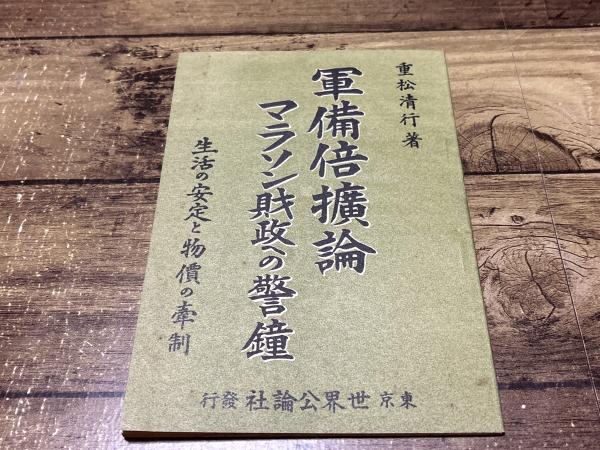 重松清行著
軍備倍擴論
マラソン財政への警鐘
生活の安定と物價の牽制
東京 世界公論社 發行